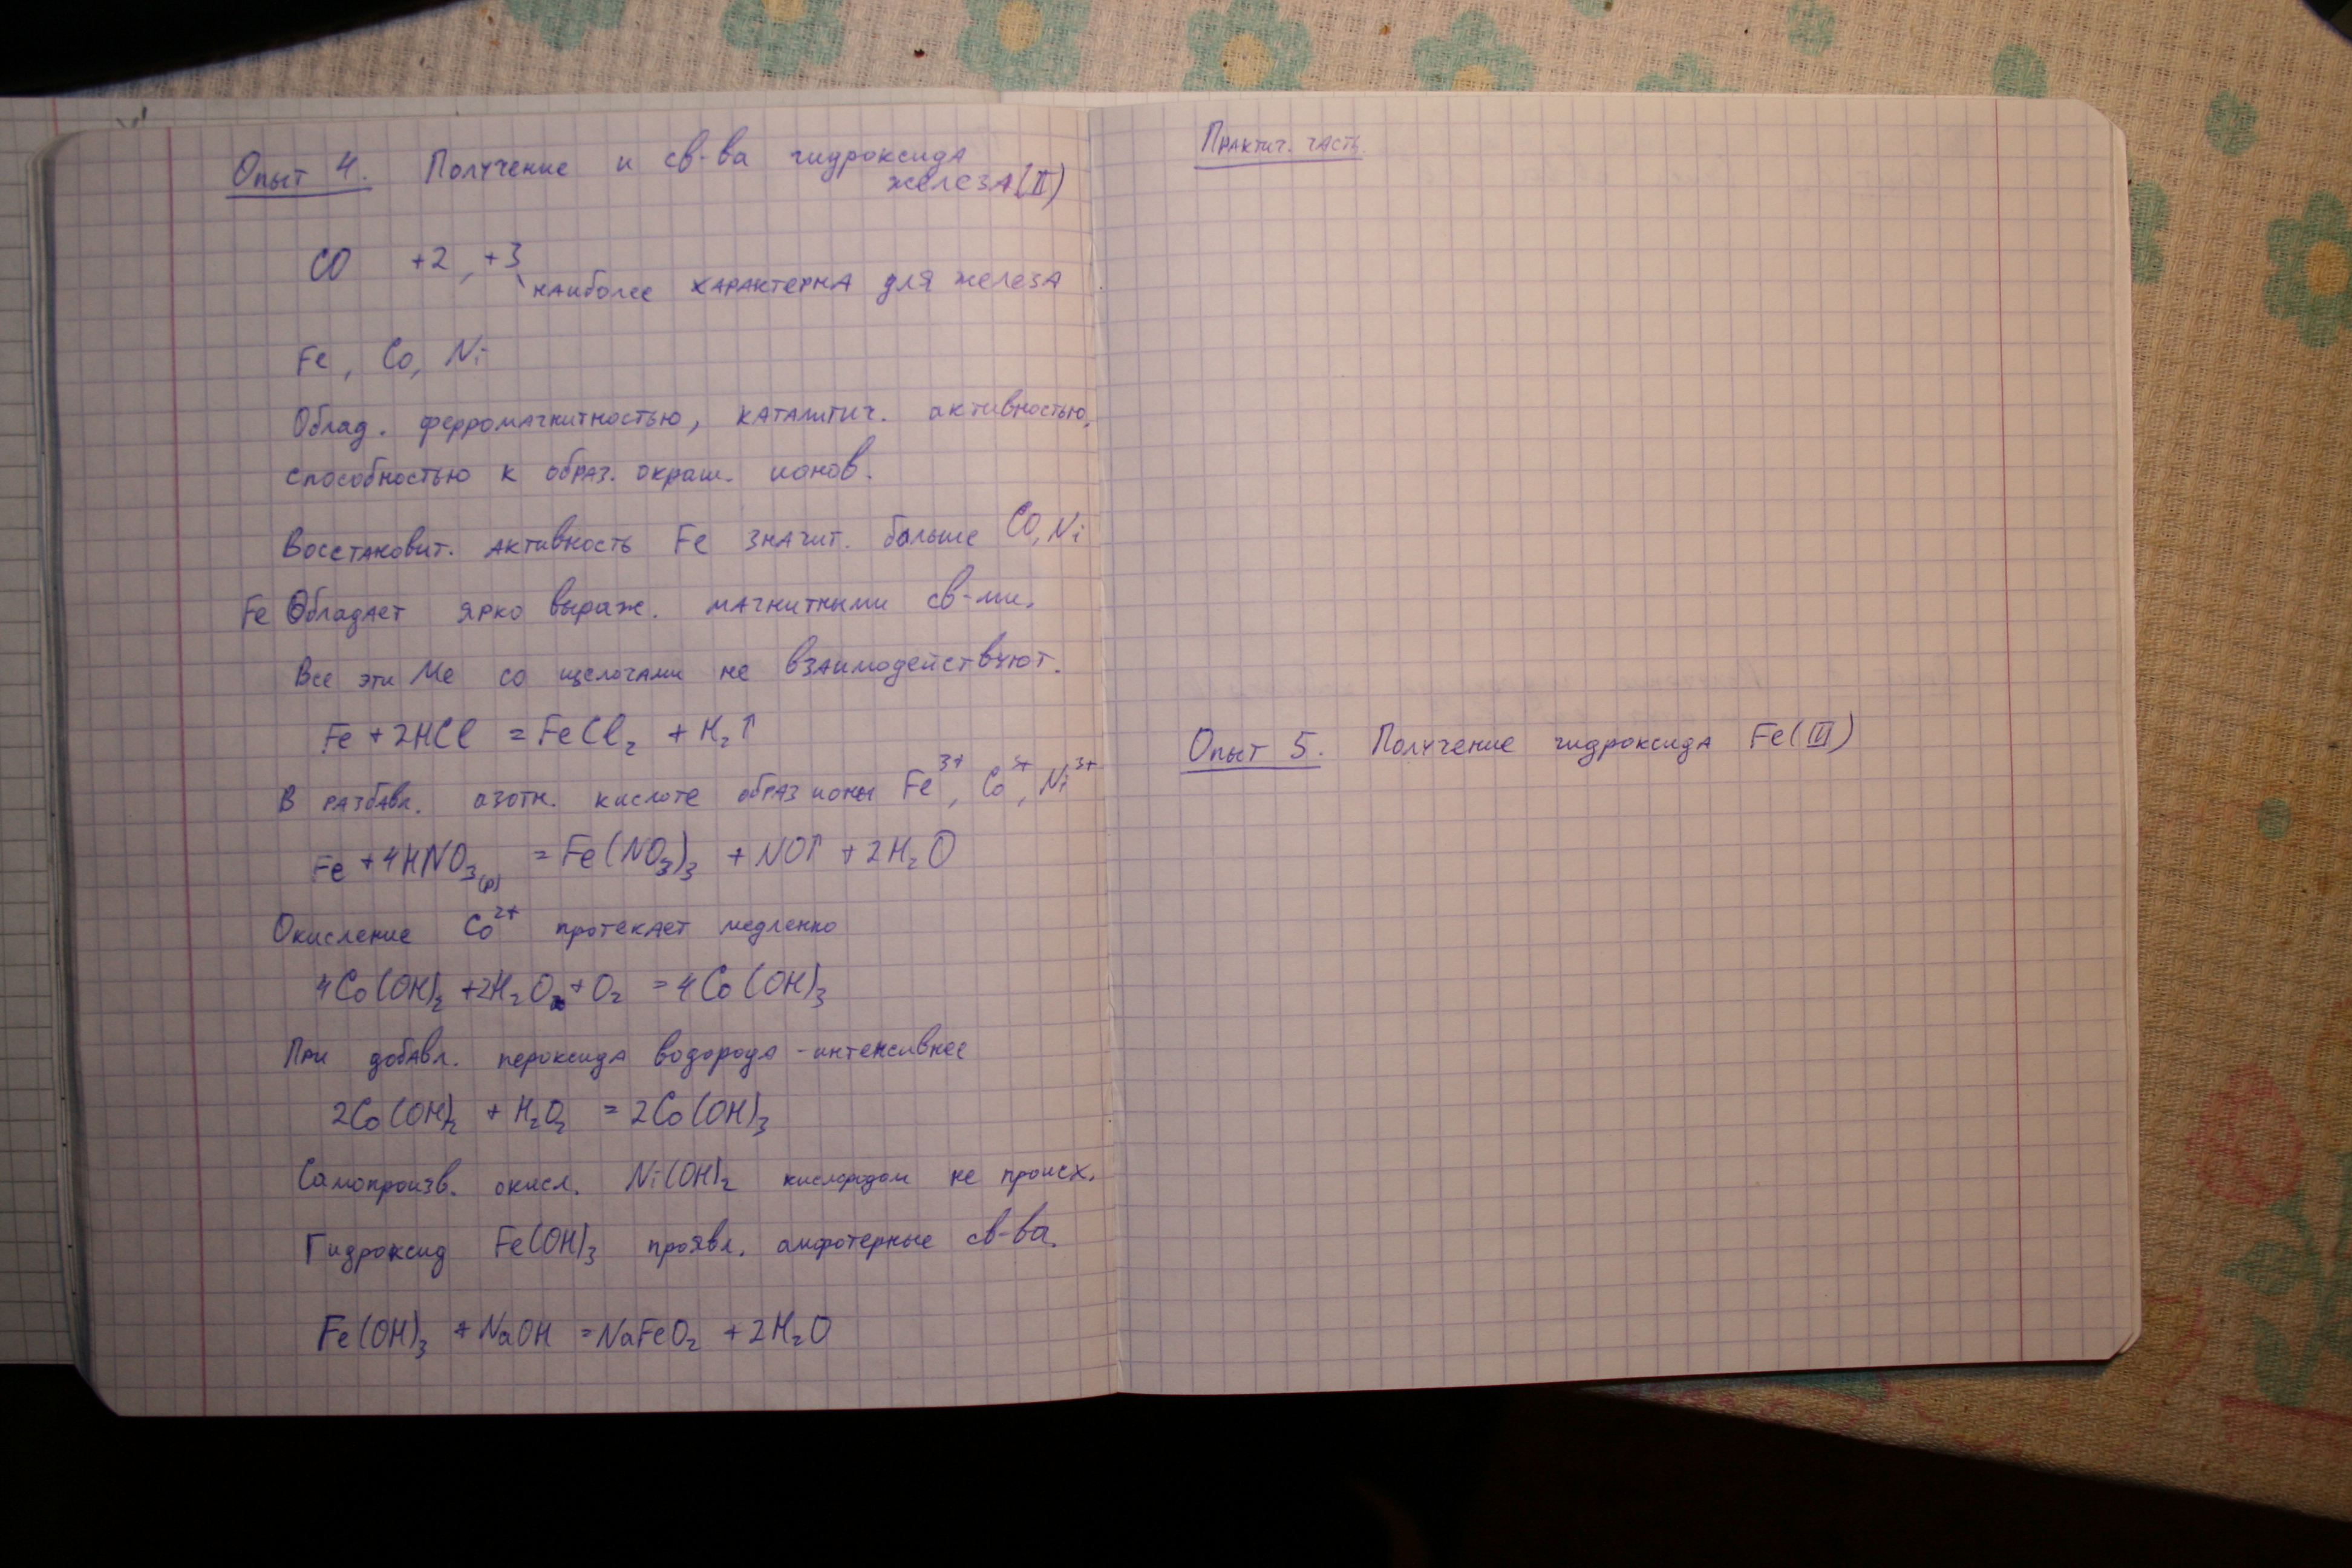 Опыт 4. Получение и св-ва гидроксида
железа (II)
СО +2, +3
наиболее характерна для железа
Fe, Co, Ni
Облад. ферромагнитностью, каталитич. активностью,
способностью к образ. окраш. ионов.
Восстановит. активность Fe значит. больше CO, Ni
Fe Обладает ярко выраж. магнитными св-ми.
Все эти Ме со щелочами не взаимодействуют.
Fe + 2HCl = FeCl₂ + H₂↑
В разбавл. азотн. кислоте образ ионы Fe³⁺, Co³⁺, Ni³⁺
Fe + 4HNO₃(р) = Fe(NO₃)₃ + NO↑ + 2H₂O
Окисление Co²⁺ протекает медленно
4Co(OH)₂ + 2H₂O + O₂ = 4Co(OH)₃
При добавл. пероксида водорода - интенсивнее
2Co(OH)₂ + H₂O₂ = 2Co(OH)₃
Самопроизв. окисл. Ni(OH)₂ кислородом не происх.
Гидроксид Fe(OH)₃ проявл. амфотерные св-ва.
Fe(OH)₃ + NaOH = NaFeO₂ + 2H₂O
Практич. часть.
Опыт 5. Получение гидроксида Fe(III)